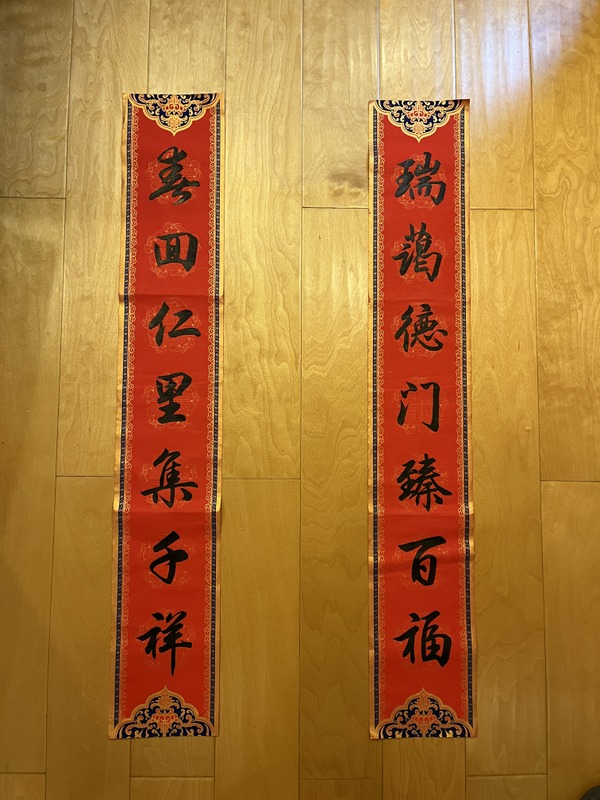 瑞蔼德门臻百福
春回仁里集千祥